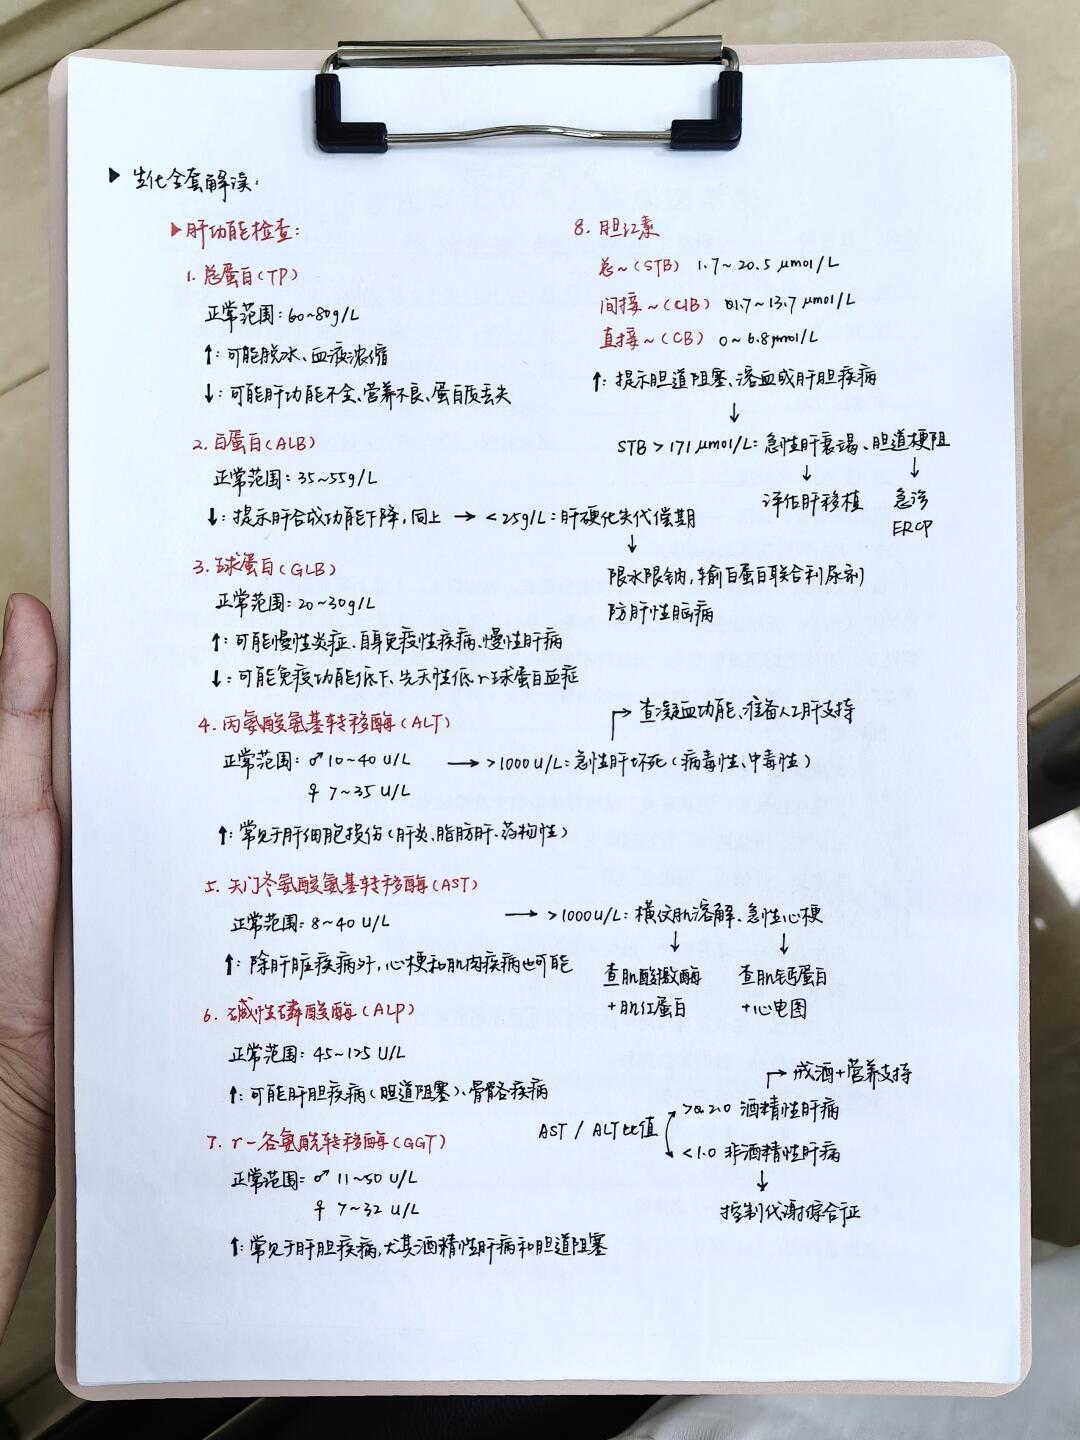 ▶ 生化全套解读:
▶肝功能检查:
1. 总蛋白(TP)
正常范围: 60~80g/L
↑: 可能脱水、血液浓缩
↓: 可能肝功能不全、营养不良、蛋白质丢失
2. 白蛋白(ALB)
正常范围: 35~55g/L
↓: 提示肝合成功能下降, 同上 → <25g/L: 肝硬化失代偿期
↓
限水限钠, 输白蛋白联合利尿剂
防肝性脑病
3. 球蛋白(GLB)
正常范围: 20~30g/L
↑: 可能慢性炎症、自身免疫性疾病、慢性肝病
↓: 可能免疫功能低下、先天性低r球蛋白血症
4. 丙氨酸氨基转移酶(ALT)
正常范围: ♂ 10~40 U/L → >1000 U/L: 急性肝坏死(病毒性、中毒性)
♀ 7~35 U/L
→ 查凝血功能、准备人工肝支持
↑: 常见于肝细胞损伤(肝炎、脂肪肝、药物性)
5. 天门冬氨酸氨基转移酶(AST)
正常范围: 8~40 U/L → >1000U/L: 横纹肌溶解、急性心梗
↑: 除肝脏疾病外, 心梗和肌肉疾病也可能
↓ ↓
查肌酸激酶 查肌钙蛋白
+肌红蛋白 +心电图
6. 碱性磷酸酶(ALP)
正常范围: 45~125 U/L
↑: 可能肝胆疾病(胆道阻塞)、骨骼疾病
7. r-谷氨酰转移酶(GGT)
正常范围: ♂ 11~50 U/L
♀ 7~32 U/L
↑: 常见于肝胆疾病, 尤其酒精性肝病和胆道阻塞
8. 胆红素
总~(STB) 1.7~20.5 μmol/L
间接~() 1.7~13.7 μmol/L
直接~(CB) 0~6.8μmol/L
↑: 提示胆道阻塞、溶血或肝胆疾病
↓
STB>171 μmol/L: 急性肝衰竭、胆道梗阻
↓ ↓
评估肝移植 急诊
ERCP
→ 戒酒+营养支持
>2.0 酒精性肝病
AST / ALT比值
<1.0 非酒精性肝病
↓
控制代谢综合征